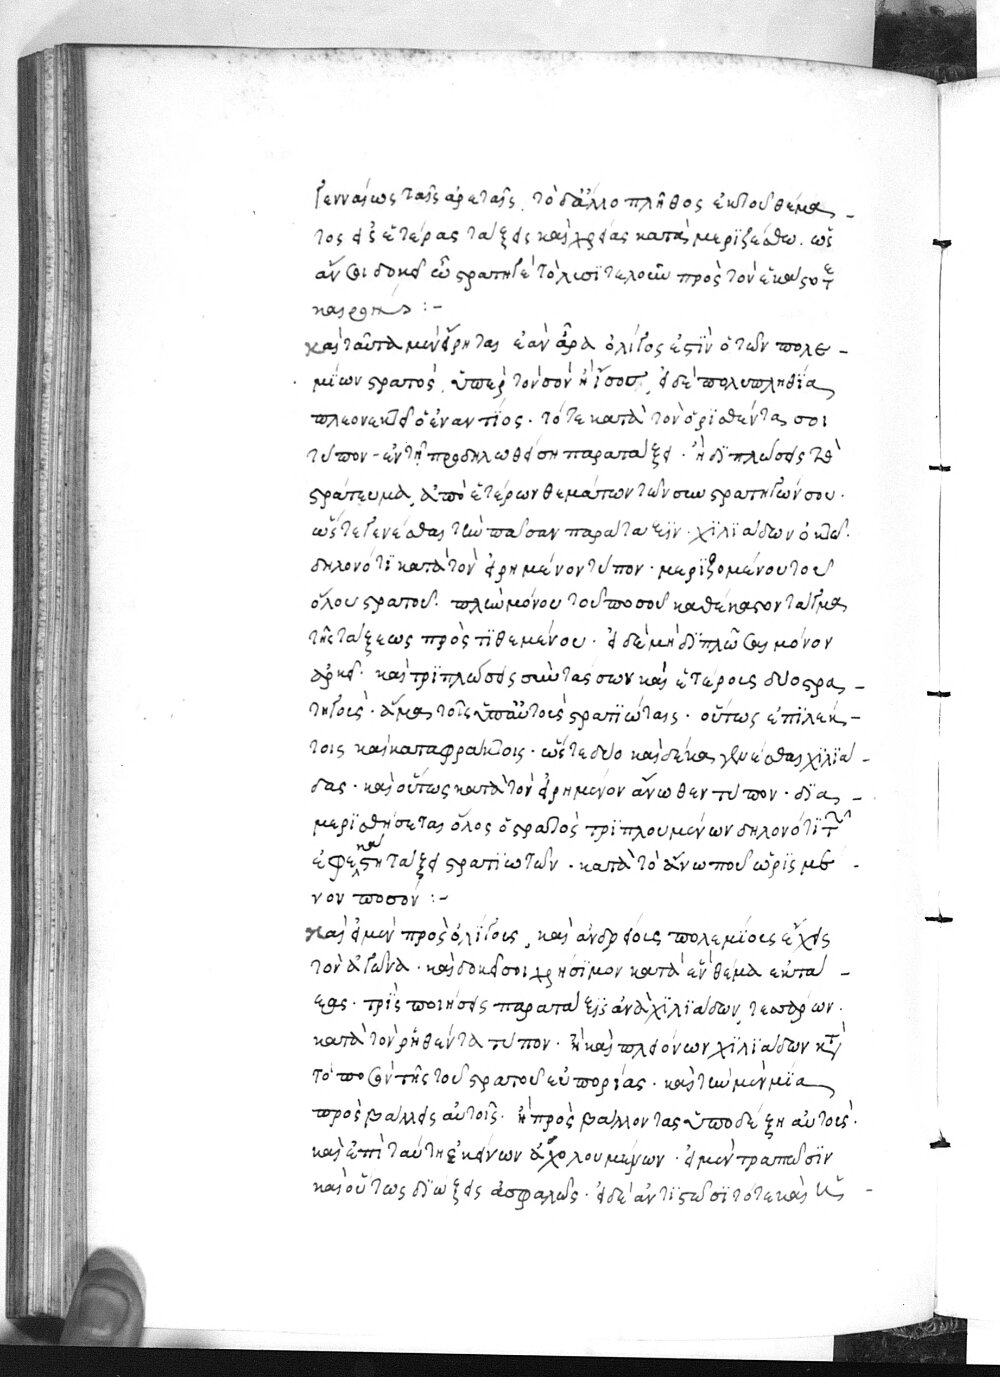 γενναίως ταῖς ἀρεταῖς, τὸ δ' ἄλλο πλῆθος ἐκ τοῦ θέμα-
τος εἰς ἑτέρας τάξεις καὶ χρείας καταμεριζέσθω. ὡς
ἄν σοι δοκεῖ ὦ στρατηγὲ τὸ λυσιτελοῦν πρὸς τὸν ἕκαστότε
καιρὸν :-
καὶ ταῦτα μὲν εἴρηται ἐὰν ἄρα ὀλίγος ἐστὶν ὁ τῶν πολε-
μίων στρατός, ὑπὲρ τὸν σὸν ἢ ἴσου, εἰ δὲ πολυπληθία
πλεονεκτεῖ ὁ ἐναντίος. τότε κατὰ τὸν ὁρισθέντα σοι
τύπον ἐν τῇ προδηλωθείσῃ παρατάξει. ἢ διπλώσεις τὸ
στράτευμα, ἀπὸ ἑτέρων θεμάτων τῶν συστρατηγῶν σου.
ὥστε γενέσθαι τὴν πᾶσαν παράταξιν. χιλιάδων ὀκτώ.
δηλονότι κατὰ τὸν εἰρημένον τύπον. μεριζομένου τοῦ
ὅλου στρατοῦ. πλὴν μόνου τοῦ ποσοῦ καθέκαστον τάγμα
τῆς τάξεως προστιθεμένου. εἰ δὲ μὴ διπλῶσαι μόνον
ἀρκεῖ. καὶ τριπλώσεις συντάσσων καὶ ἑτέροις δυο στρα-
τηγοῖς. ἅμα τοῖς ὑπ' αὐτοῖς στρατιώταις. οὕτως ἐπιλεκ-
τοις καὶ καταφράκτοις. ὥστε δυο καὶ δέκα γενέσθαι χιλιά-
δας. καὶ οὕτως κατὰ τὸν εἰρημένον ἄνωθεν τύπον. δια-
μερισθήσεται ὅλος ὁ στρατὸς τριπλουμένων δηλονότι τῶν
ἐφ' ἑκάστη τάξει στρατιωτῶν. κατὰ τὸ ἄνω που ὡρισμέ-
νον ποσόν :-
καὶ εἰ μὲν πρὸς ὀλίγοις, καὶ ἀνδρείοις πολεμίοις ἔχεις
τὸν ἀγῶνα. καὶ δοκεῖ σοι χρήσιμον κατὰ ἓν θέμα ἐκτά-
ξαι. τρὶς ποιήσεις παρατάξεις ἀνὰ χιλιάδων, τεσσάρων.
κατὰ τὸν ῥηθέντα τύπον. ἢ καὶ πλειόνων χιλιάδων κατὰ
τὸ ποσὸν τῆς τοῦ στρατοῦ εὐπορίας. καὶ τὴν μὲν μία
προσβάλλεις αὐτοῖς. ἢ προσβάλλοντας ὑποδέξῃ αὐτοὺς.
καὶ ἐπὶ ταύτης ἐκείνων ἀσχολουμένων. εἰ μὲν τραπῶσιν
καὶ οὕτως διώξεις ἀσφαλῶς. εἰ δὲ ἀντιστῶσι τότε καὶ